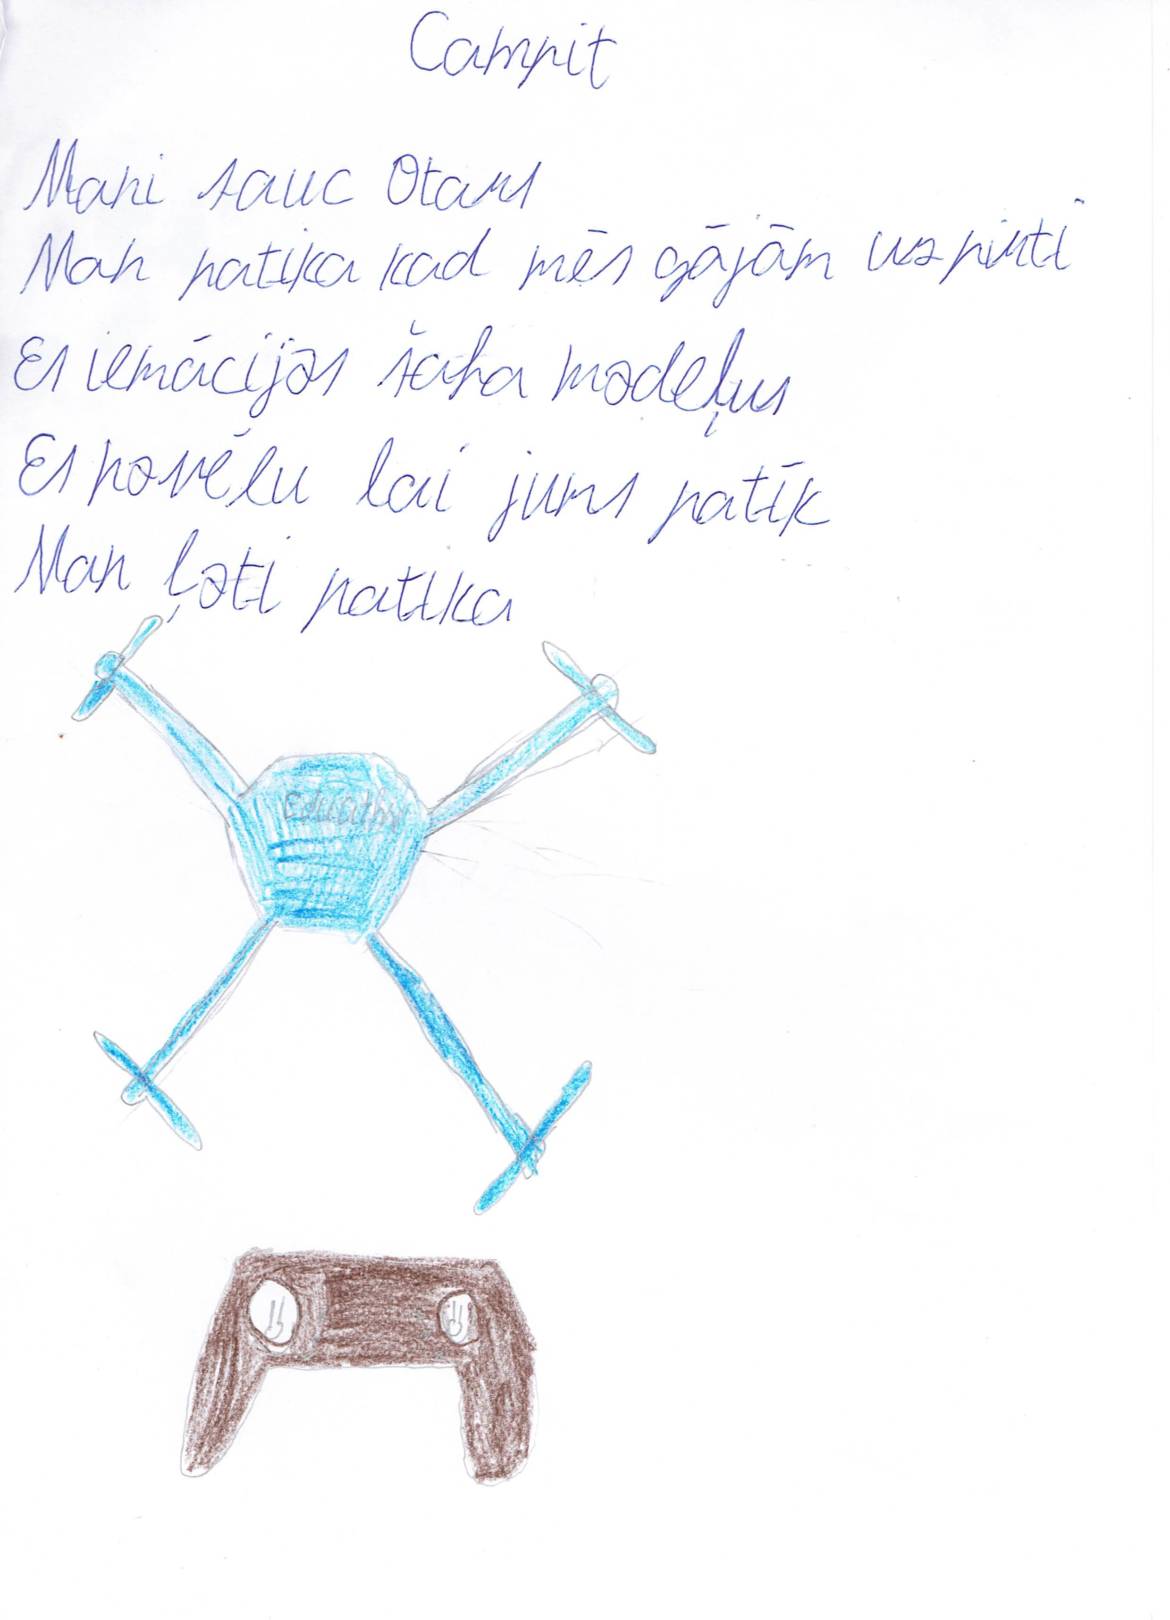 Campit
Mani sauc Otars
Man patika kad mēs gājām uz pirti
Es iemācijos šaha modeļus
Es novēlu lai jums patīk
Man ļoti patika